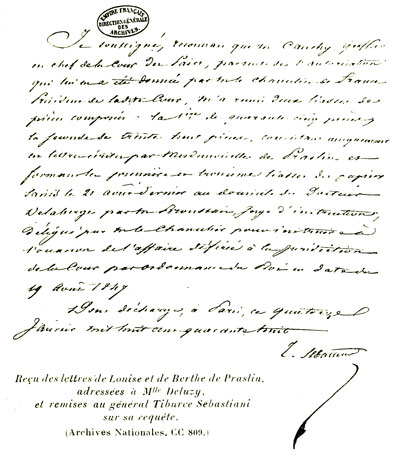 EMPIRE FRANÇAIS
DIRECTION GÉNÉRALE
DES
ARCHIVES
Je soussigné, reconnais que m Cauchy greffier
en chef de la Cour des Pairs, par suite de l'autorisation
qui lui en a été donnée par m le chancelier de France
Président de ladite Cour, m'a remis deux liasses de
pièces composées : la 1ère de quarante cinq pièces
la seconde de trente huit pièces, consistant uniquement
en lettres écrites par Mesdemoiselles de Praslin et
formant les première et troisième liasses des papiers
saisis le 21 août dernier au domicile du Docteur
Delaberge par m Broussais, Juge d'instruction,
délégué par m le Chancelier pour instruire à
l'occasion de l'affaire déférée à la Juridiction
de la Cour par ordonnance du Roi en date du
19 Août 1847
Dont décharge, à Paris, ce quatorze
Janvier mil huit cent quarante huit
Reçu des lettres de Louise et de Berthe de Praslin,
adressées à Mlle Deluzy,
et remises au général Tiburce Sebastiani
sur sa requête.
(Archives Nationales, CC 809.)